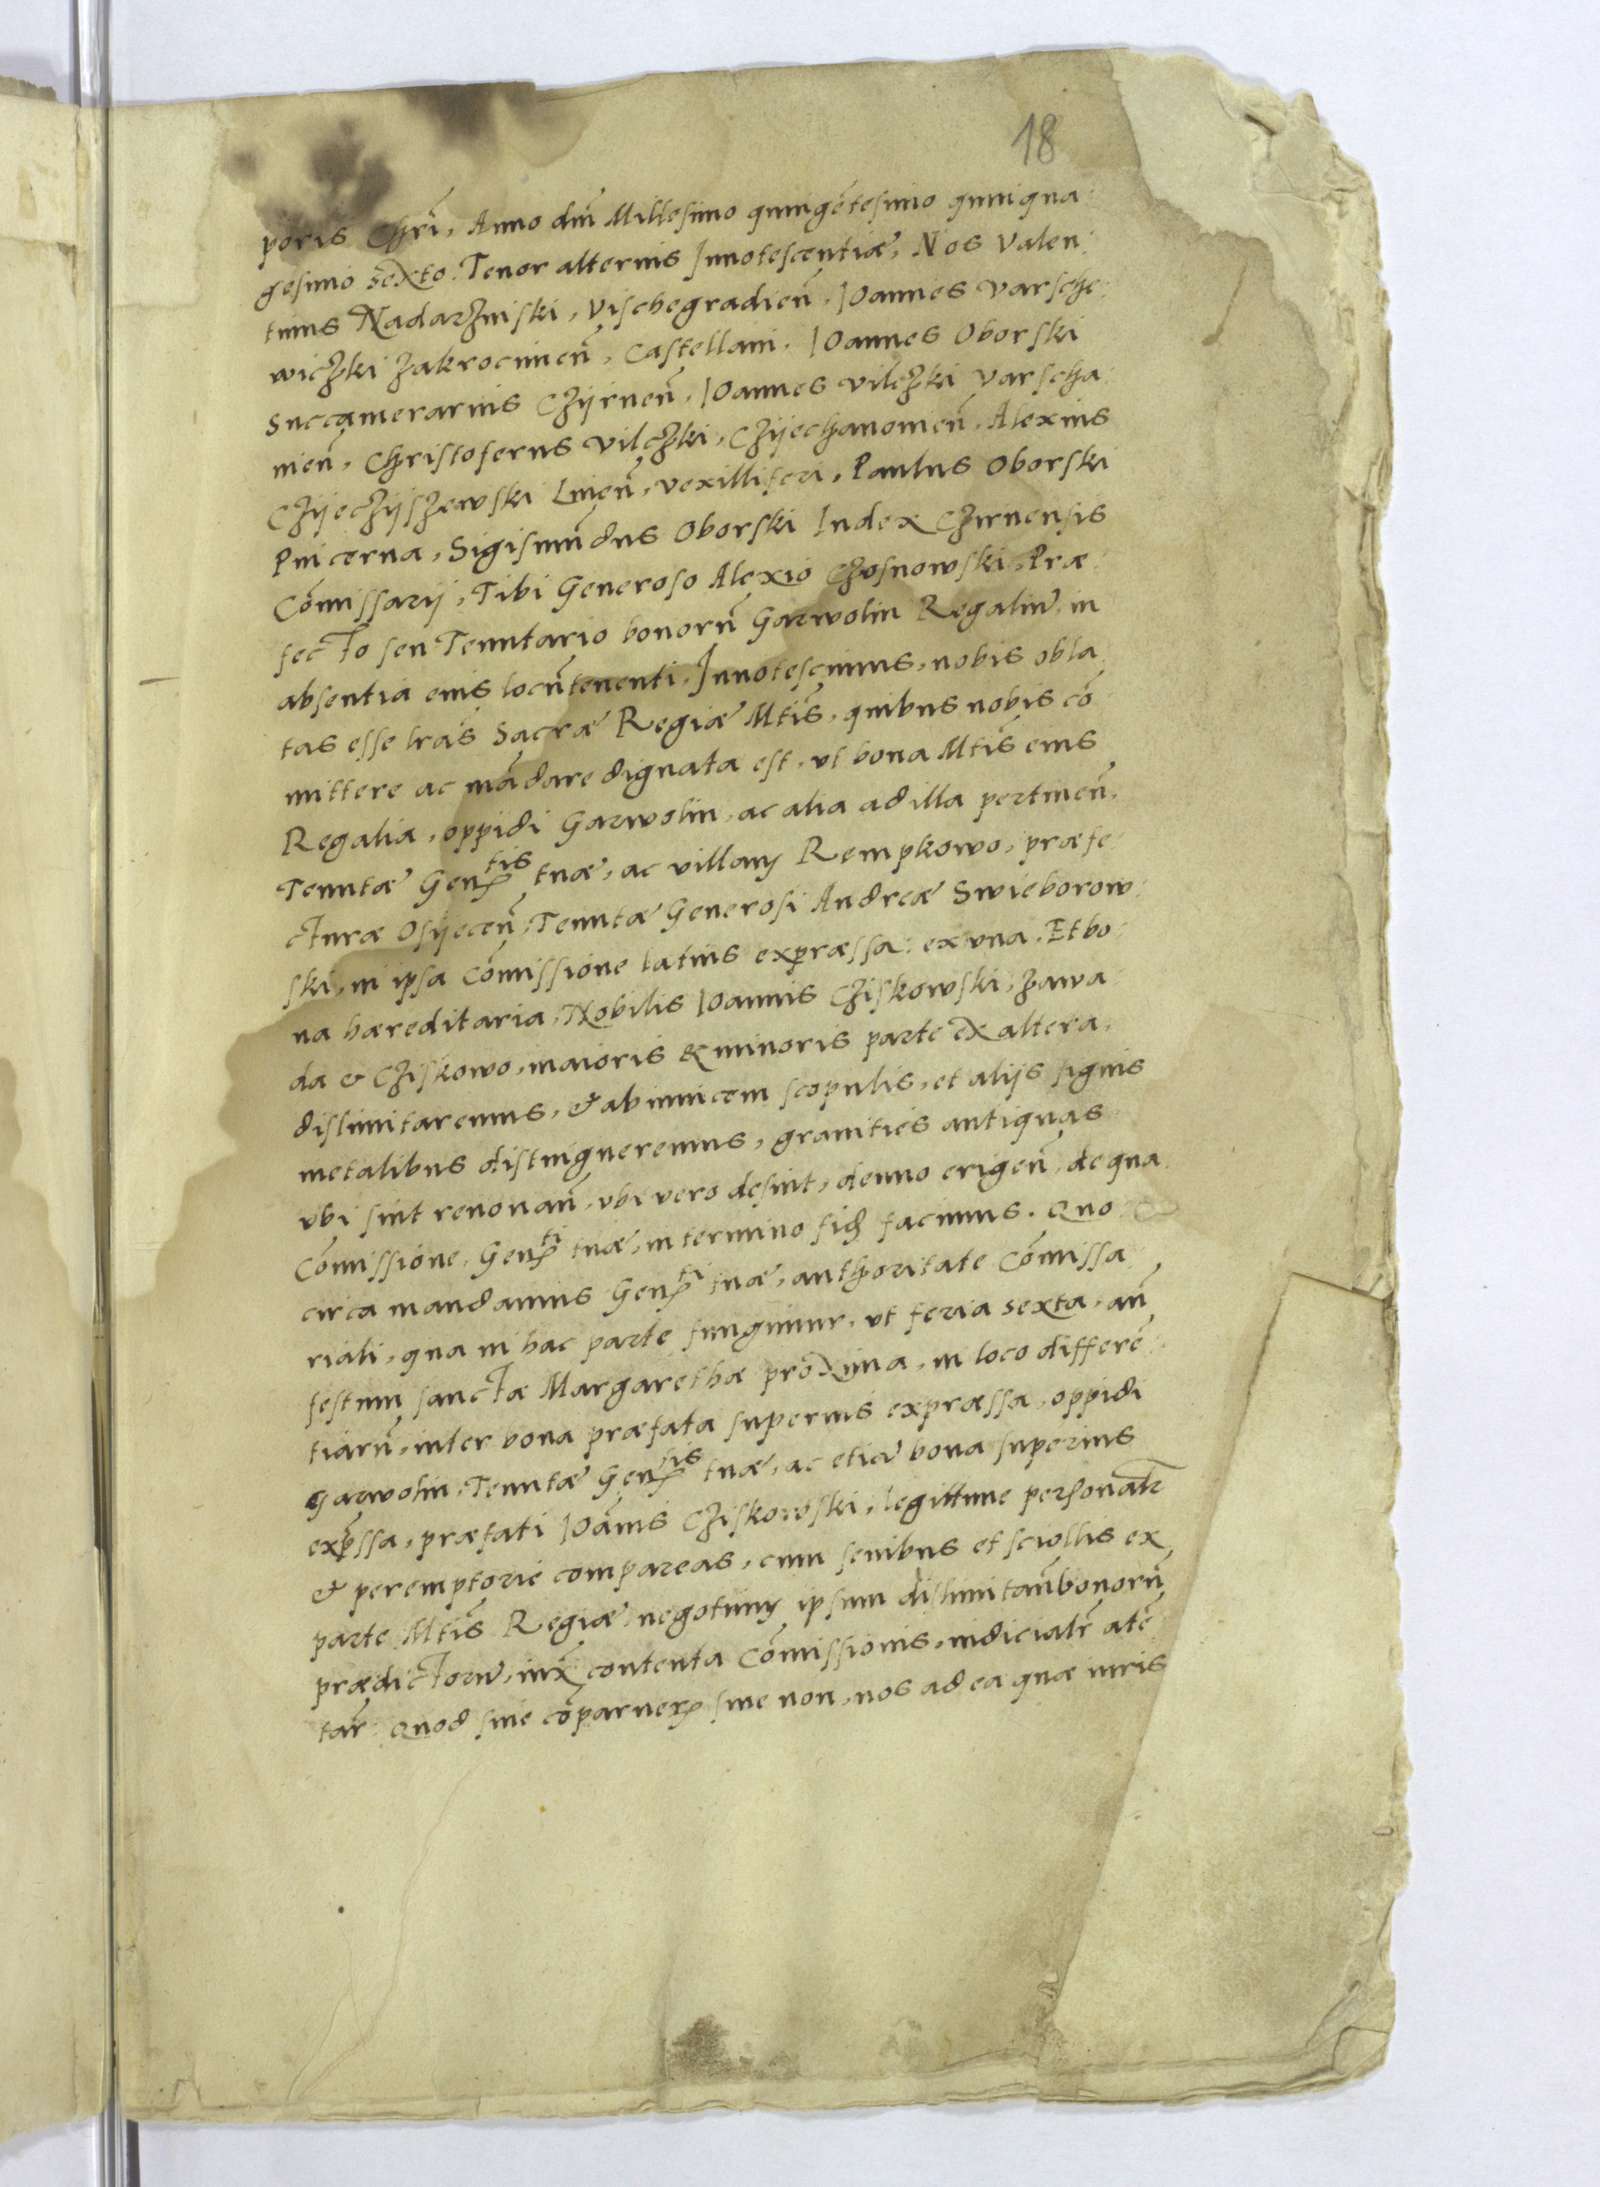 18
poris Chri̅, Anno dn̅i Millesimo quinge̅tesimo quinqua:
gesimo sexto. Tenor alterius Innotescentiæ, Nos Valen:
tinus Nadarzinski, Vischegradien̅, Ioannes Varsche:
wiczki Zakrocimen̅, Castellani. Ioannes Oborski
Succamerarius Czijrnen̅, Ioannes Vilczki Varscha:
uien̅, Christoferus Vilczki, Czijechanouien̅, Alexius
Czijeczijszewski Liuen̅, vexilliferi, Paulus Oborski
Pincerna, Sigismu̅dus Oborski Iudex Czirnensis
Co̅missarij, Tibi Generoso Alexio Chosnowski, Præ:
fecto seu Tenutario bonoru̅ Garwolin Regaliu̅, in
absentia eius locu̅tenenti, Innotescimus, nobis obla:
tas esse lr̅as Sacræ Regiæ Mtis̅, quibus nobis co̅
mittere ac ma̅dare dignata est, ut bona Mtis̅ eius
Regalia, oppidi Garwolin, ac alia ad illa pertinen̅,
Tenutæ Gen̅tis tuæ, ac villam Rempkowo, præfe:
cturæ Osijecen̅, Tenutæ Generosi Andreæ Swieborow:
ski, in ipsa Co̅missione latius expræssa: ex una. Et bo:
na hæreditaria, Nobilis Ioannis Cziskowski, Zawa:
da & Cziskowo, maioris & minoris parte ex altera,
dislimitaremus, & abinuicem scopulis, et alijs signis
metalibus distingueremus, granities antiquas
ubi sint renouan̅, ubi vero desint, denuo erigen̅, de qua
Co̅missione, Gen̅ti tuæ, in termino fid̅ facimus. Quo
circa mandamus Gen̅ti tuæ, authoritate Co̅missa:
riali, qua in hac parte fungimur, ut feria sexta, an̅
festum sanctæ Margarethæ proxima, in loco differe̅:
tiaru̅, inter bona præfata superius expræssa, oppidi
Garwolin, Tenutæ Gen̅tis tuæ, ac etia̅ bona superius
exp̅ssa, præfati Ioa̅nis Cziskowski, legittime personalr̅
& peremptorie compareas, cum senibus et sciollis ex
parte Mtis̅ Regiæ, negotium ipsum dislimitan̅ bonoru̅
prædictoru̅, iux̅ contenta Co̅missionis, iudicialr̅ ate̅
tar̅: Quod siue co̅paruer̅ siue non, nos ad ea quæ iuris